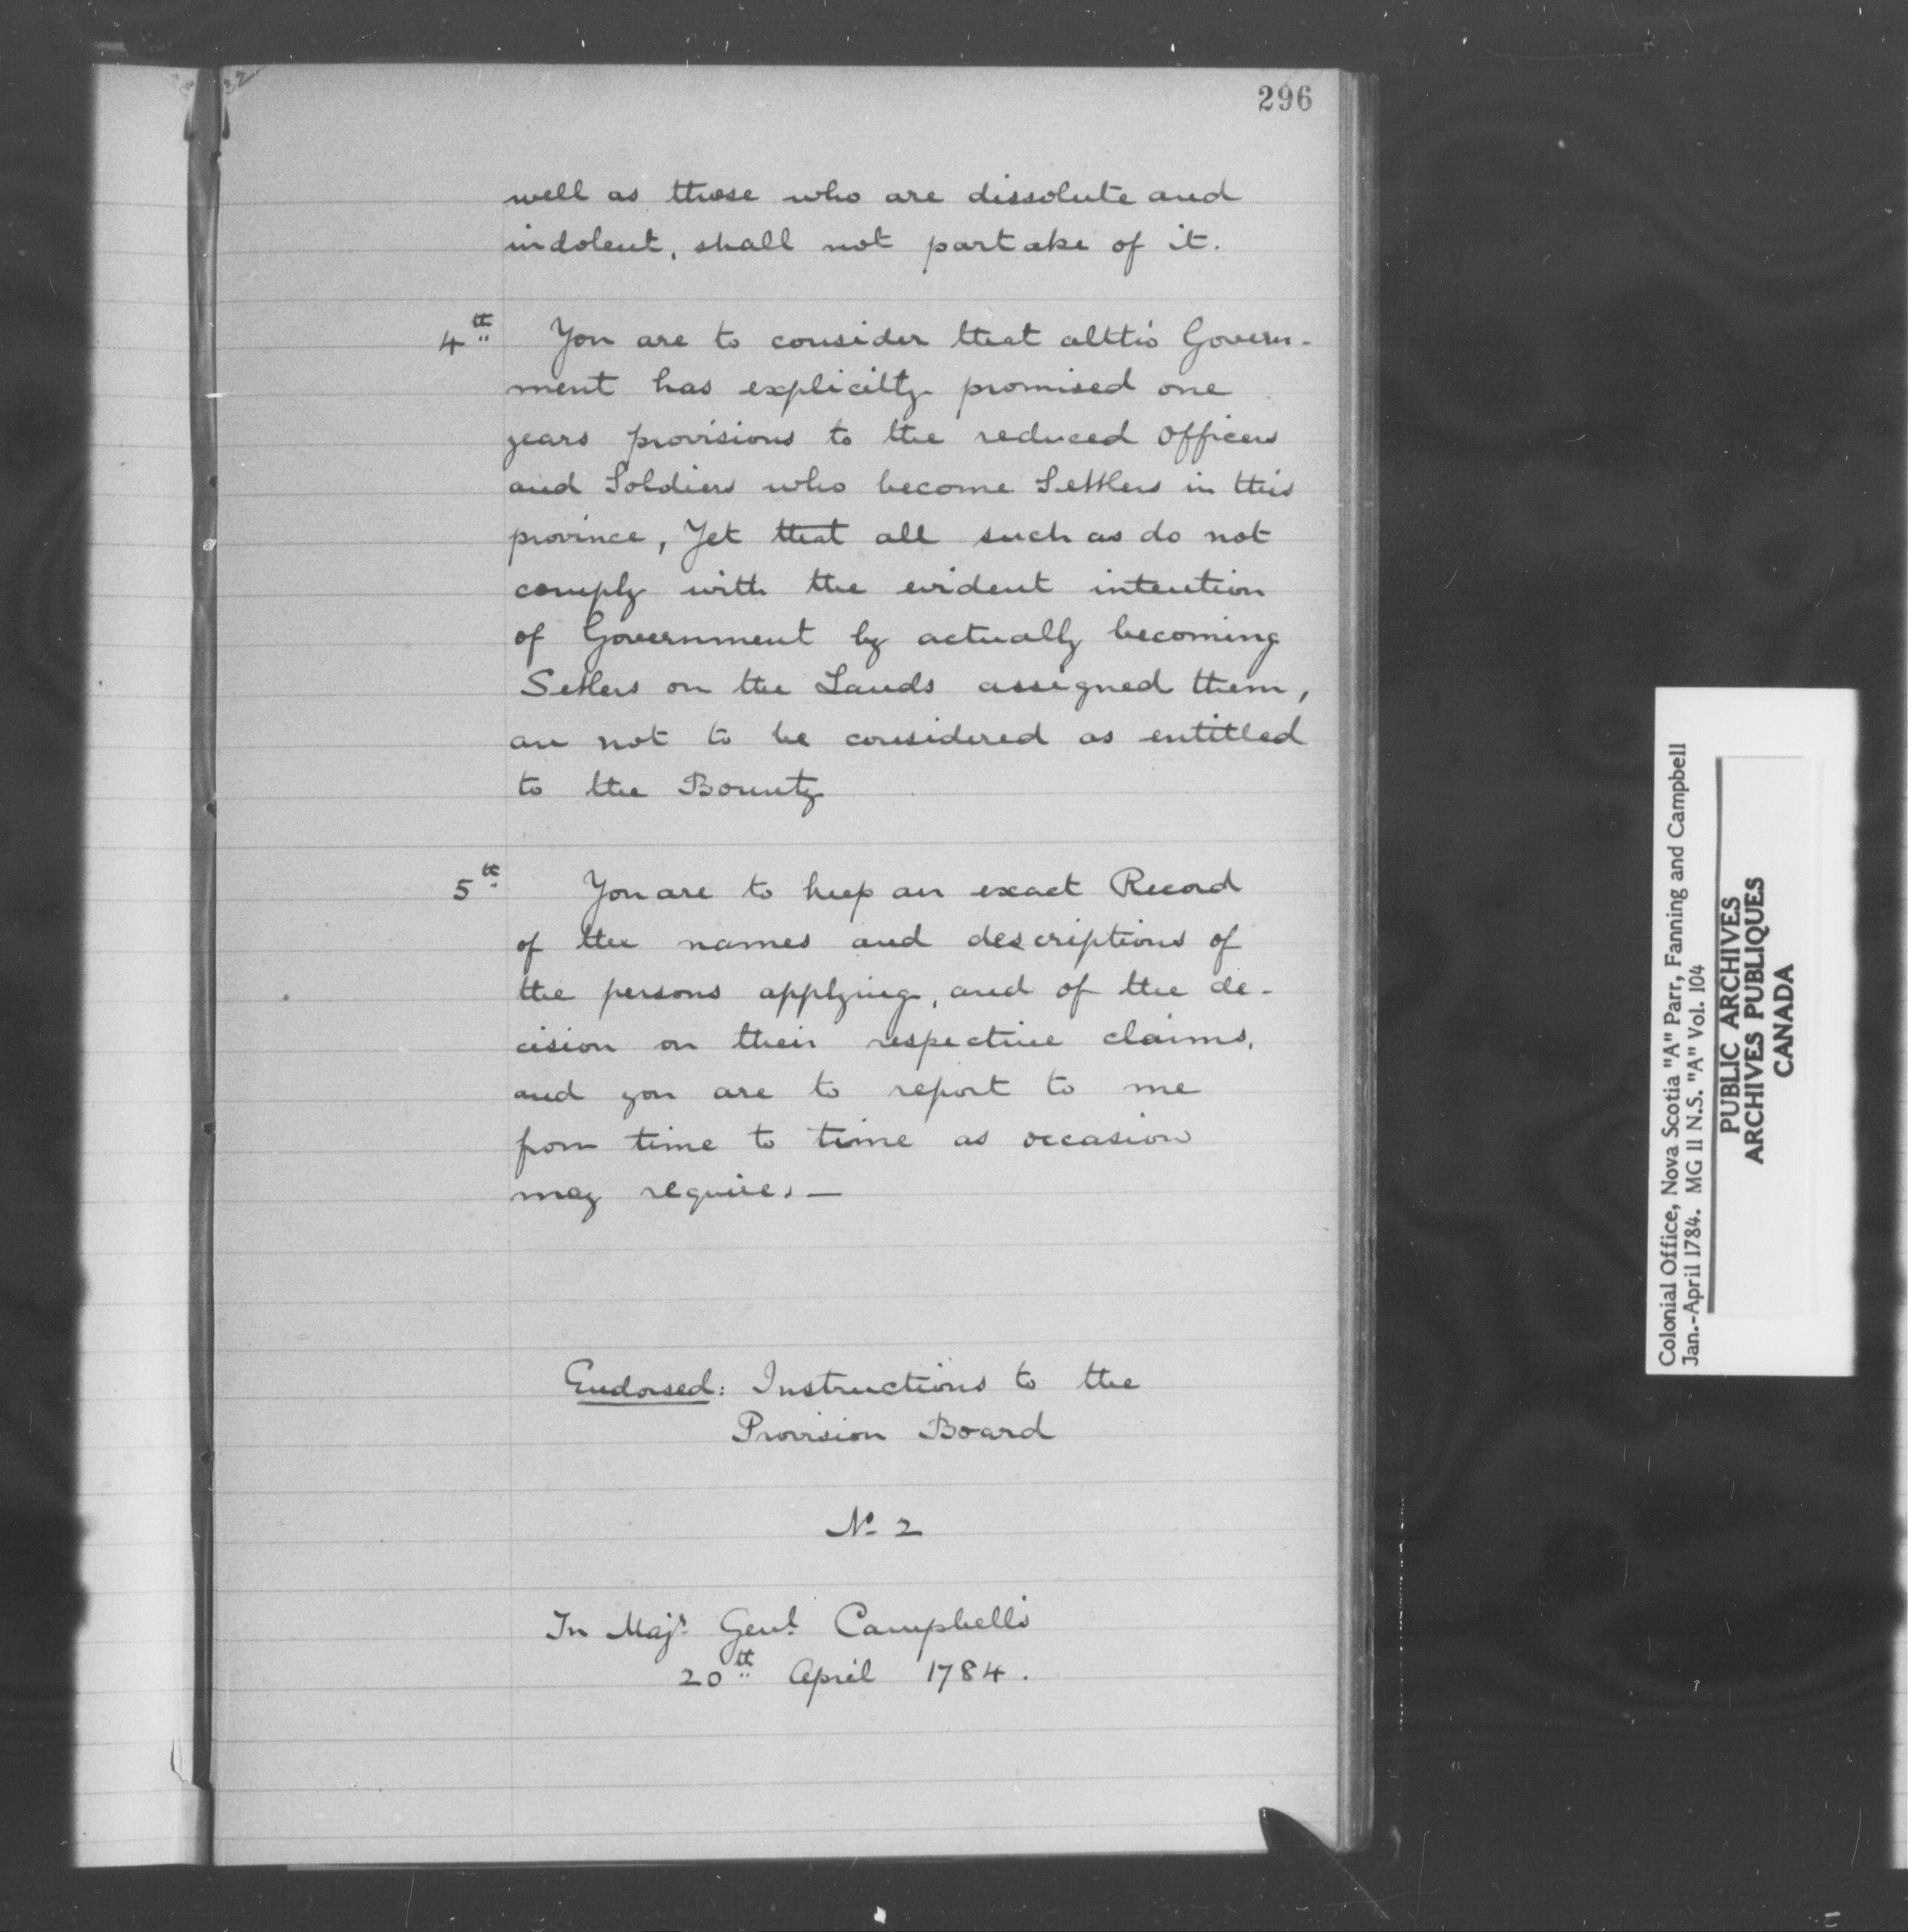 296
well as those who are dissolute and
indolent, shall not partake of it.
4th You are to consider that altho' Govern-
ment has explicitly promised one
years provisions to the reduced Officers
and Soldiers who become Settlers in this
province, Yet that all such as do not
comply with the evident intention
of Government by actually becoming
Settlers on the Lands assigned them,
are not to be considered as entitled
to the Bounty
5th You are to keep an exact Record
of the names and descriptions of
the persons applying, and of the de-
cision on their respective claims,
and you are to report to me
from time to time as occasion
may require. —
Endorsed: Instructions to the
Provision Board
No 2
In Majr Genl Campbell's
20th April 1784.
Colonial Office, Nova Scotia "A" Parr, Fanning and Campbell
Jan.-April 1784. MG 11 N.S. "A" Vol. 104
PUBLIC ARCHIVES
ARCHIVES PUBLIQUES
CANADA